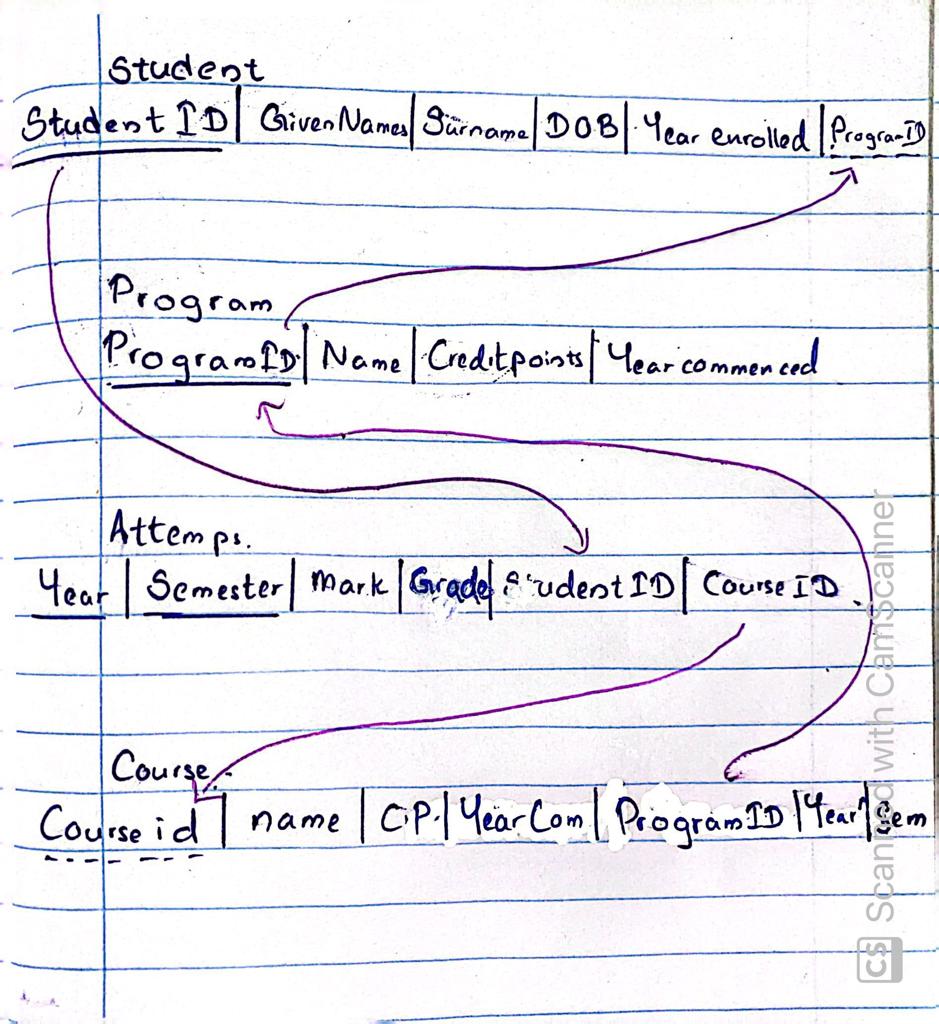 Student
Student ID | GivenNames | Surname | DOB | Year enrolled | ProgramID
Program
ProgramID | Name | Creditpoints | Year commenced
Attemps.
Year | Semester | Mark | Grade | StudentID | Course ID.
Course.
Course id | name | C.P. | YearCom | ProgramID | Year | Sem
CS Scanned with CamScanner